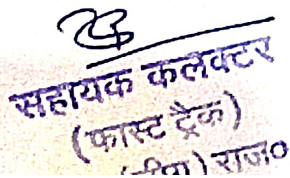 सहायक कलेक्टर
(फास्ट ट्रैक)
राज०